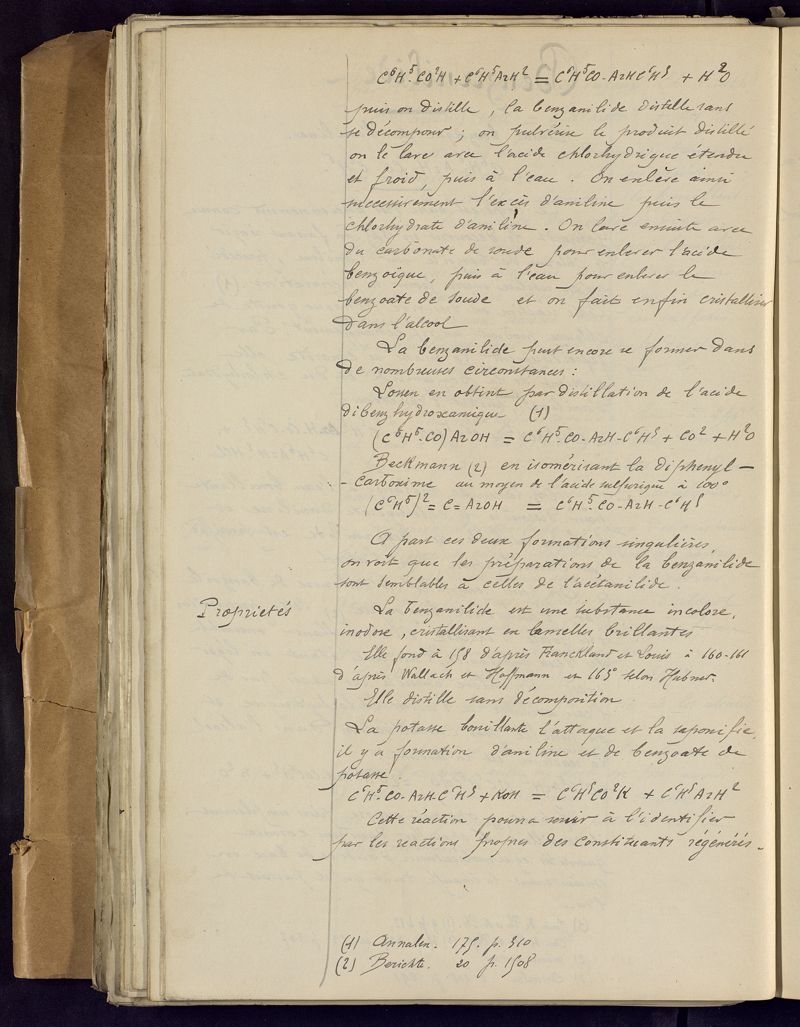 C⁶H⁵-CO²H + C⁶H⁵AzH² = C⁶H⁵CO-AzHC⁶H⁵ + H²O
puis on distille, la benzanilide distille sans
se décomposer ; on pulvérise le produit distillé
on le lave avec l'acide chlorhydrique étendu
et froid, puis à l'eau. On enlève ainsi
successivement l'excès d'aniline puis le
chlorhydrate d'aniline. On lave ensuite avec
du carbonate de soude pour enlever l'acide
benzoïque, puis à l'eau pour enlever le
benzoate de soude et on fait enfin cristalliser
dans l'alcool
La benzanilide peut encore se former dans
de nombreuses circonstances :
Lossen en obtint par distillation de l'acide
dibenzhydroxamique (1)
(C⁶H⁵-CO)AzOH = C⁶H⁵-CO-AzH-C⁶H⁵ + CO² + H²O
Beckmann (2) en isomérisant la diphenyl-
-carboxime au moyen de l'acide sulfurique à 100°
(C⁶H⁵)²=C=AzOH = C⁶H⁵-CO-AzH-C⁶H⁵
A part ces deux formations singulières,
on voit que les préparations de la benzanilide
sont semblables à celles de l'acétanilide.
Propriétés
La benzanilide est une substance incolore,
inodore, cristallisant en lamelles brillantes
Elle fond à 158 d'après Franckland et Louis à 160-161
d'après Wallach et Hoffmann et 163° selon Hubner.
Elle distille sans décomposition.
La potasse bouillante l'attaque et la saponifie,
il y a formation d'aniline et de benzoate de
potasse.
C⁶H⁵-CO-AzH-C⁶H⁵ + KOH = C⁶H⁵CO²K + C⁶H⁵AzH²
Cette réaction pourra servir à l'identifier
par les reactions propres des constituants régénérés.
(1) Annalen. 175. p. 310
(2) Berichte. 20 p. 1508